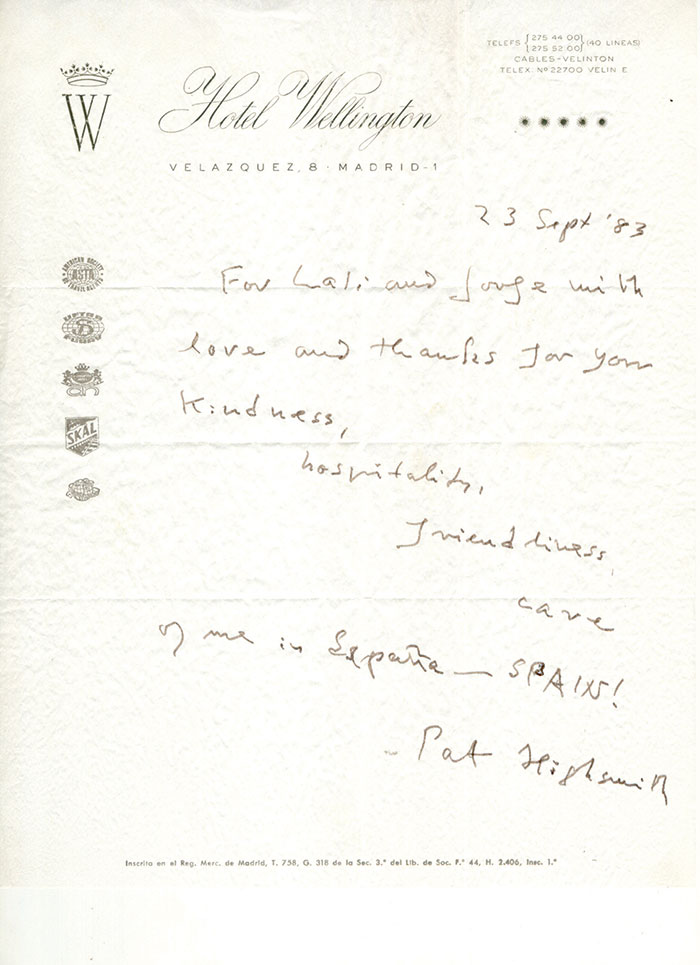 TELEFS { 275 44 00 } (40 LINEAS)
{ 275 52 00 }
CABLES-VELINTON
TELEX. Nº 22700 VELIN E
W
Hotel Wellington
VELAZQUEZ, 8 · MADRID-1
23 Sept '83
AMERICAN SOCIETY
ASTA
OF TRAVEL AGENTS
For Lali and Jorge with
love and thanks for your
kindness,
SKÅL
hospitality,
friendliness,
care
of me in España — SPAIN!
- Pat Highsmith
Inscrita en el Reg. Merc. de Madrid, T. 758, G. 318 de la Sec. 3.ª del Lib. de Soc. F.º 44, H. 2.406, Insc. 1.ª